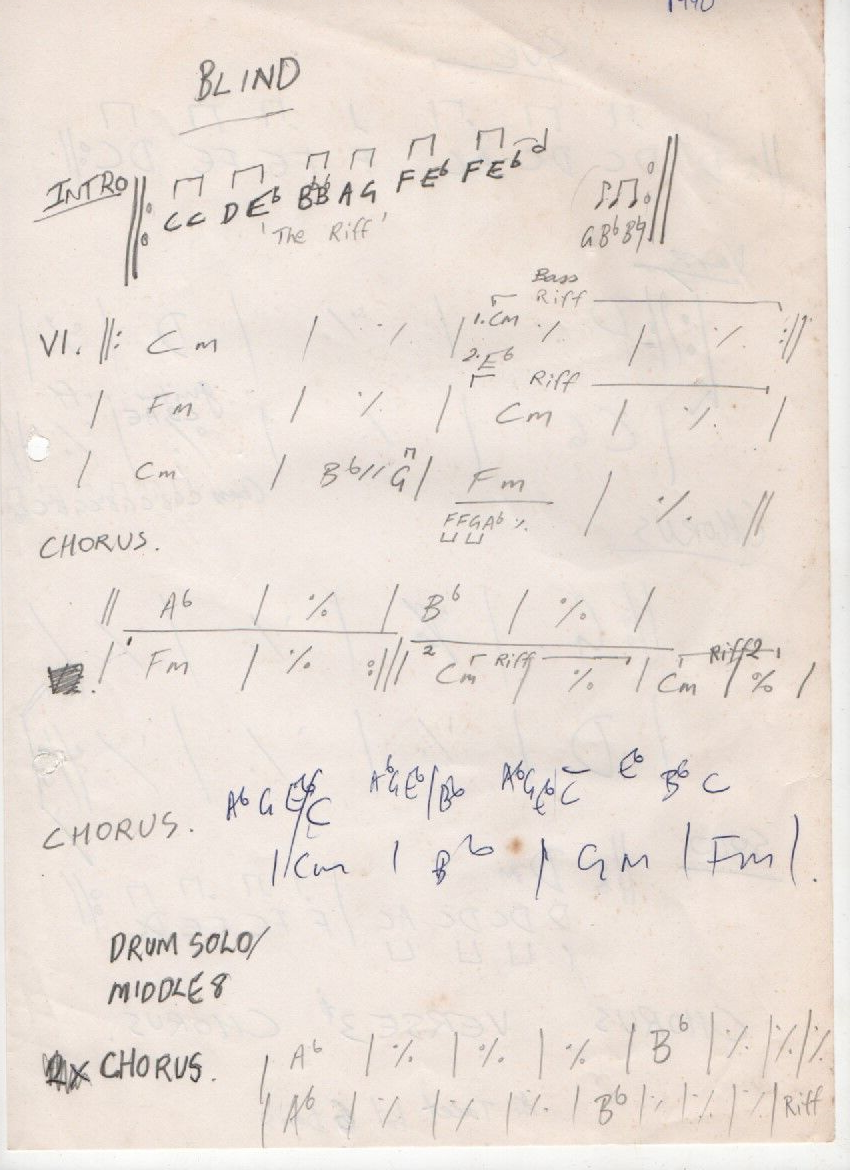 1990
BLIND
INTRO ‖: CC DE♭ B♮B♭ AG FE♭ FE♭ GB♭B♮ :‖
'The Riff'
Bass
Riff
V1. ‖: Cm | ٪ | 1. Cm ٪ | ٪ :‖
2. E♭
Riff
| Fm | ٪ | Cm | ٪ |
| Cm | B♭// G | Fm | ٪ ‖
FFGA♭ ٪
CHORUS.
‖ A♭ | ٪ | B♭ | ٪ |
| Fm | ٪ :‖ 2 Cm Riff | ٪ | Cm Riff 2 | % |
A♭ G E♭/C A♭GE♭/B♭ A♭GE♭C E♭ B♭ C
CHORUS.
| Cm | B♭ | Gm | Fm |.
DRUM SOLO/
MIDDLE 8
x CHORUS. | A♭ | ٪ | ٪ | ٪ | B♭ | ٪ | ٪ | ٪
| A♭ | ٪ | ٪ | ٪ | B♭ | ٪ | ٪ | ٪ | Riff